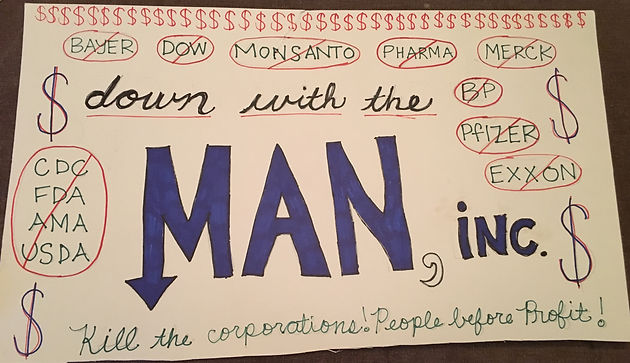 $$$$$$$$$$$$$$$$$$$$$$$$$$$$$$$$$$$$$$$$$$$$$$$$$$
BAYER DOW MONSANTO PHARMA MERCK
$ down with the BP $
PfIZER
EXXON
CDC
FDA
AMA
USDA
MAN, iNC. $
$ Kill the corporations! People before Profit!